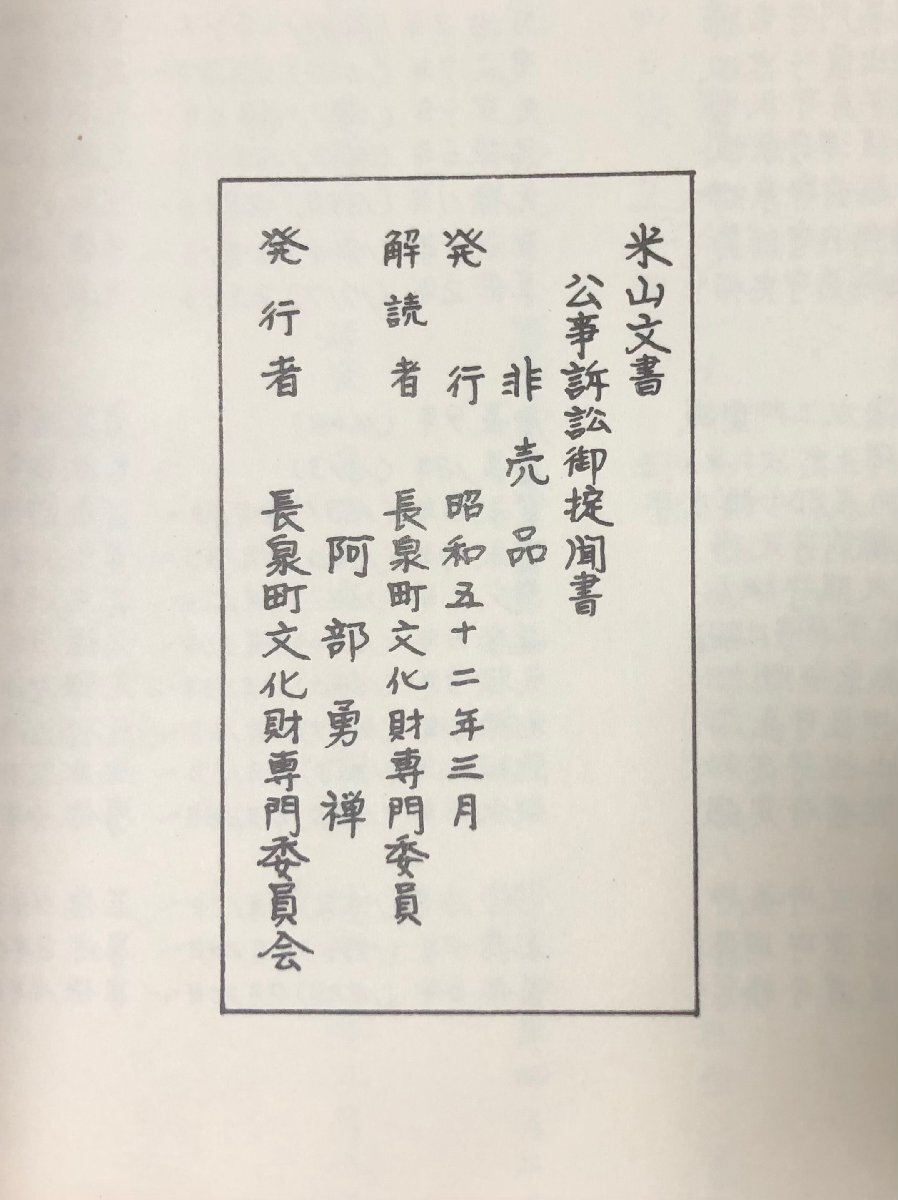 米山文書
公事訴訟御掟聞書
非売品
発行 昭和五十二年三月
解読者 長泉町文化財専門委員
阿部勇禅
発行者 長泉町文化財専門委員会